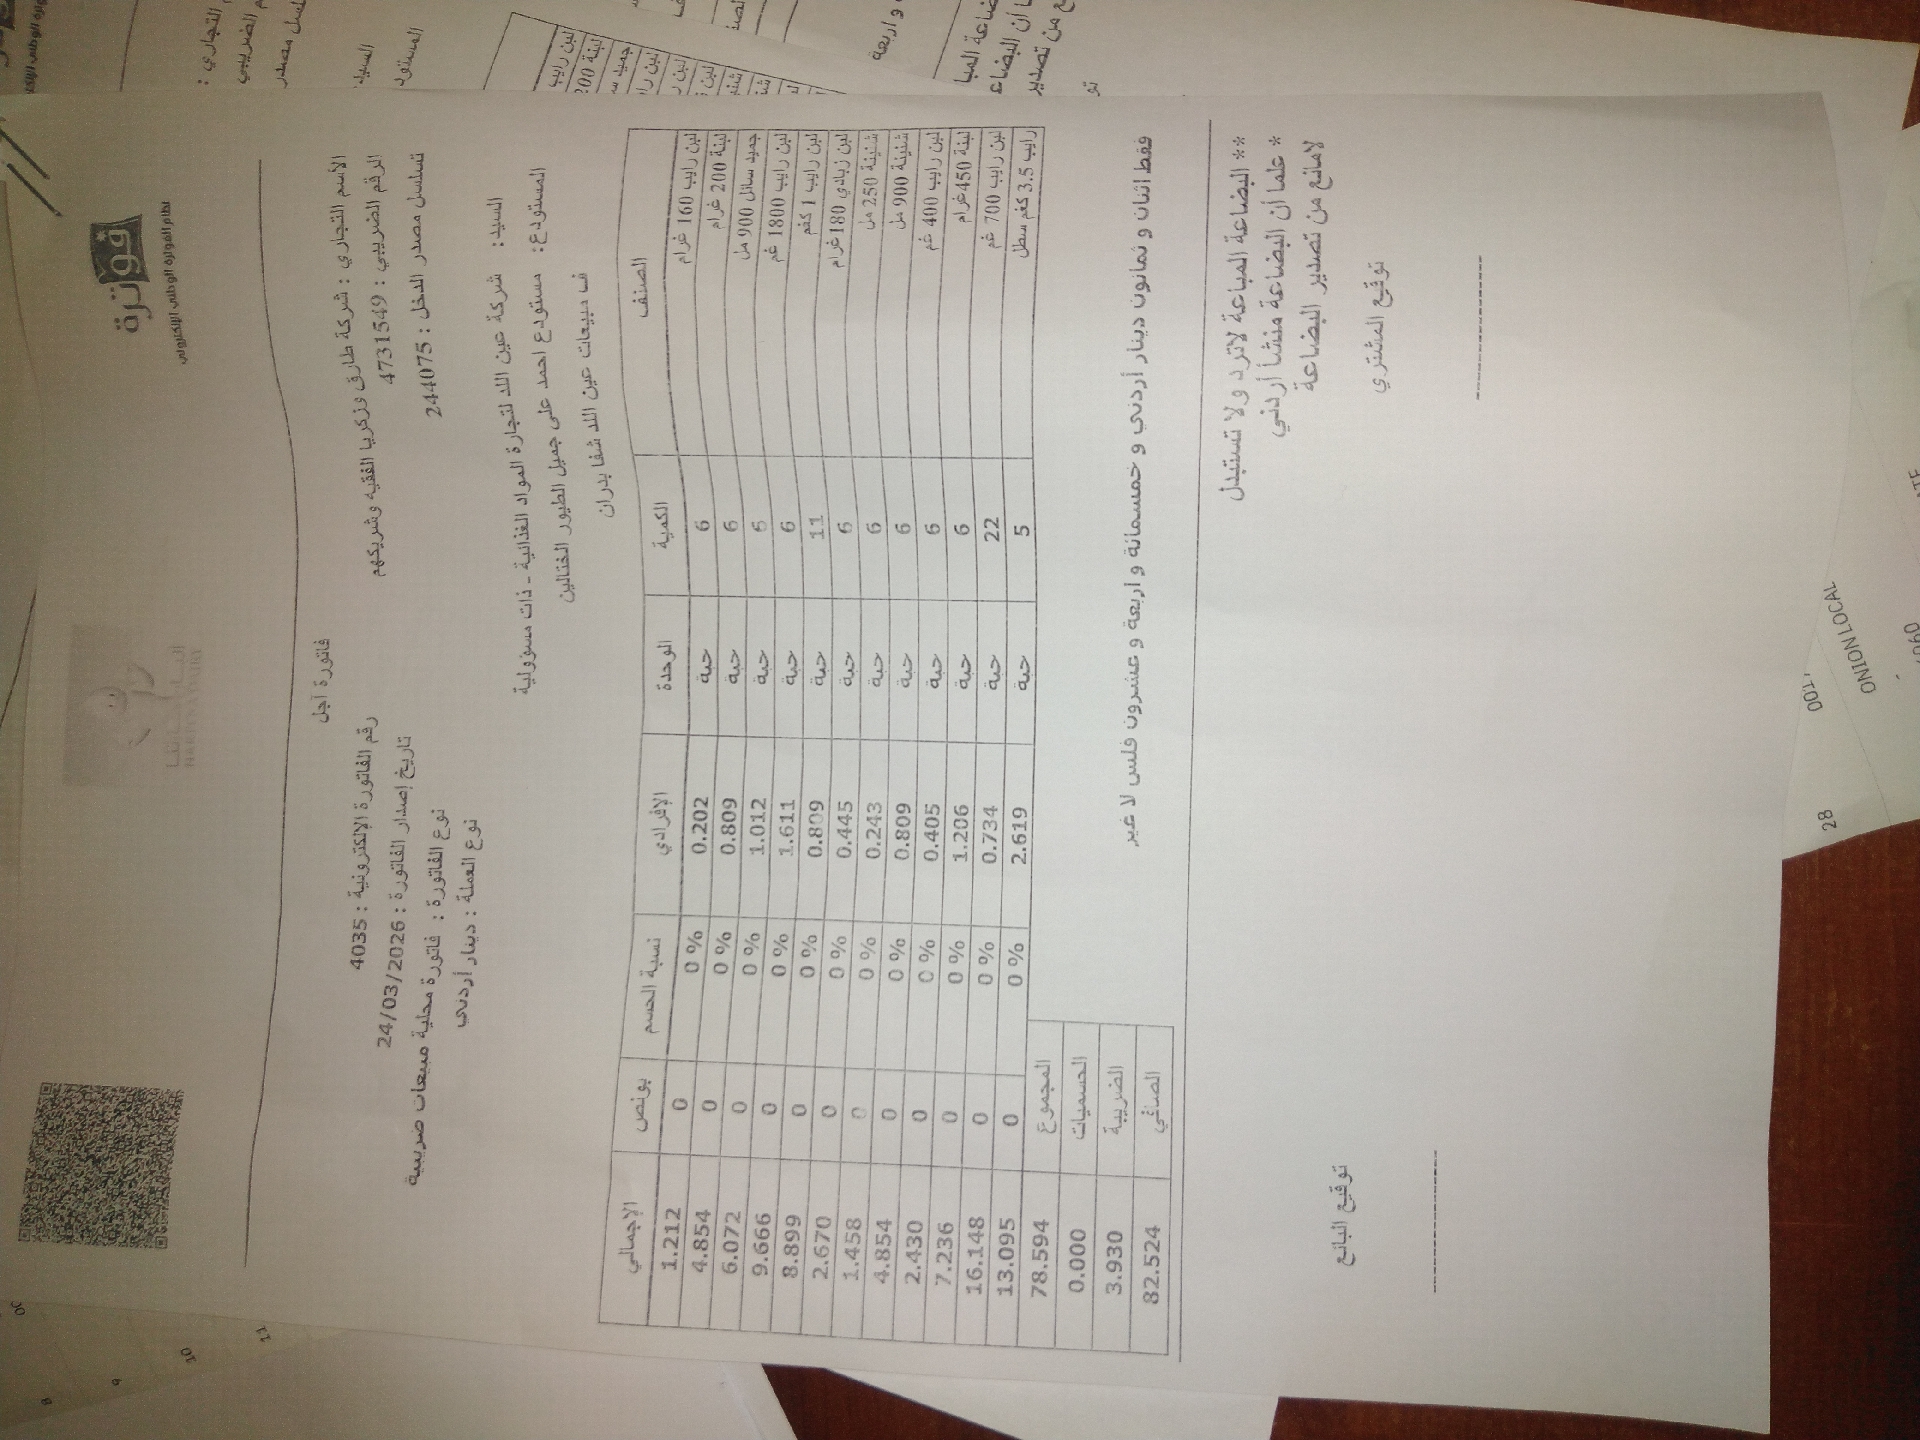 فوترة
نظام الفوترة الوطني الإلكتروني
فاتورة آجل
الأسم التجاري : شركة طارق وزكريا الفقيه وشريكهم
الرقم الضريبي : 4731549
تسلسل مصدر الدخل : 244075
رقم الفاتورة الإلكترونية : 4035
تاريخ إصدار الفاتورة : 24/03/2026
نوع الفاتورة : فاتورة محلية مبيعات ضريبية
نوع العملة : دينار أردني
السيد: شركة عين اللد لتجارة المواد الغذائية - ذات مسؤولية
المستودع: مستودع احمد على جميل الطيور الختالين
ف مبيعات عين اللد شفا بدران
الصنف الكمية الوحدة الإفرادي نسبة الحسم بونص الإجمالي
لبن رايب 160 غرام 6 حبة 0.202 0 % 0 1.212
لبنة 200 غرام 6 حبة 0.809 0 % 0 4.854
جميد سائل 900 مل 6 حبة 1.012 0 % 0 6.072
لبن رايب 1800 غم 6 حبة 1.611 0 % 0 9.666
لبن رايب 1 كغم 11 حبة 0.809 0 % 0 8.899
لبن زبادي 180 غرام 6 حبة 0.445 0 % 0 2.670
شنينة 250 مل 6 حبة 0.243 0 % 0 1.458
شنينة 900 مل 6 حبة 0.809 0 % 0 4.854
لبن رايب 400 غم 6 حبة 0.405 0 % 0 2.430
لبنة 450 غرام 6 حبة 1.206 0 % 0 7.236
لبن رايب 700 غم 22 حبة 0.734 0 % 0 16.148
رايب 3.5 كغم سطل 5 حبة 2.619 0 % 0 13.095
المجموع 78.594
الحسميات 0.000
الضريبة 3.930
الصافي 82.524
فقط اثنان و ثمانون دينار أردني و خمسمائة و اربعة و عشرون فلس لا غير
** البضاعة المباعة لاترد ولا تستبدل
* علما أن البضاعة منشأ أردني
لامانع من تصدير البضاعة
توقيع المشتري
توقيع البائع
28
001
ONION LOCAL